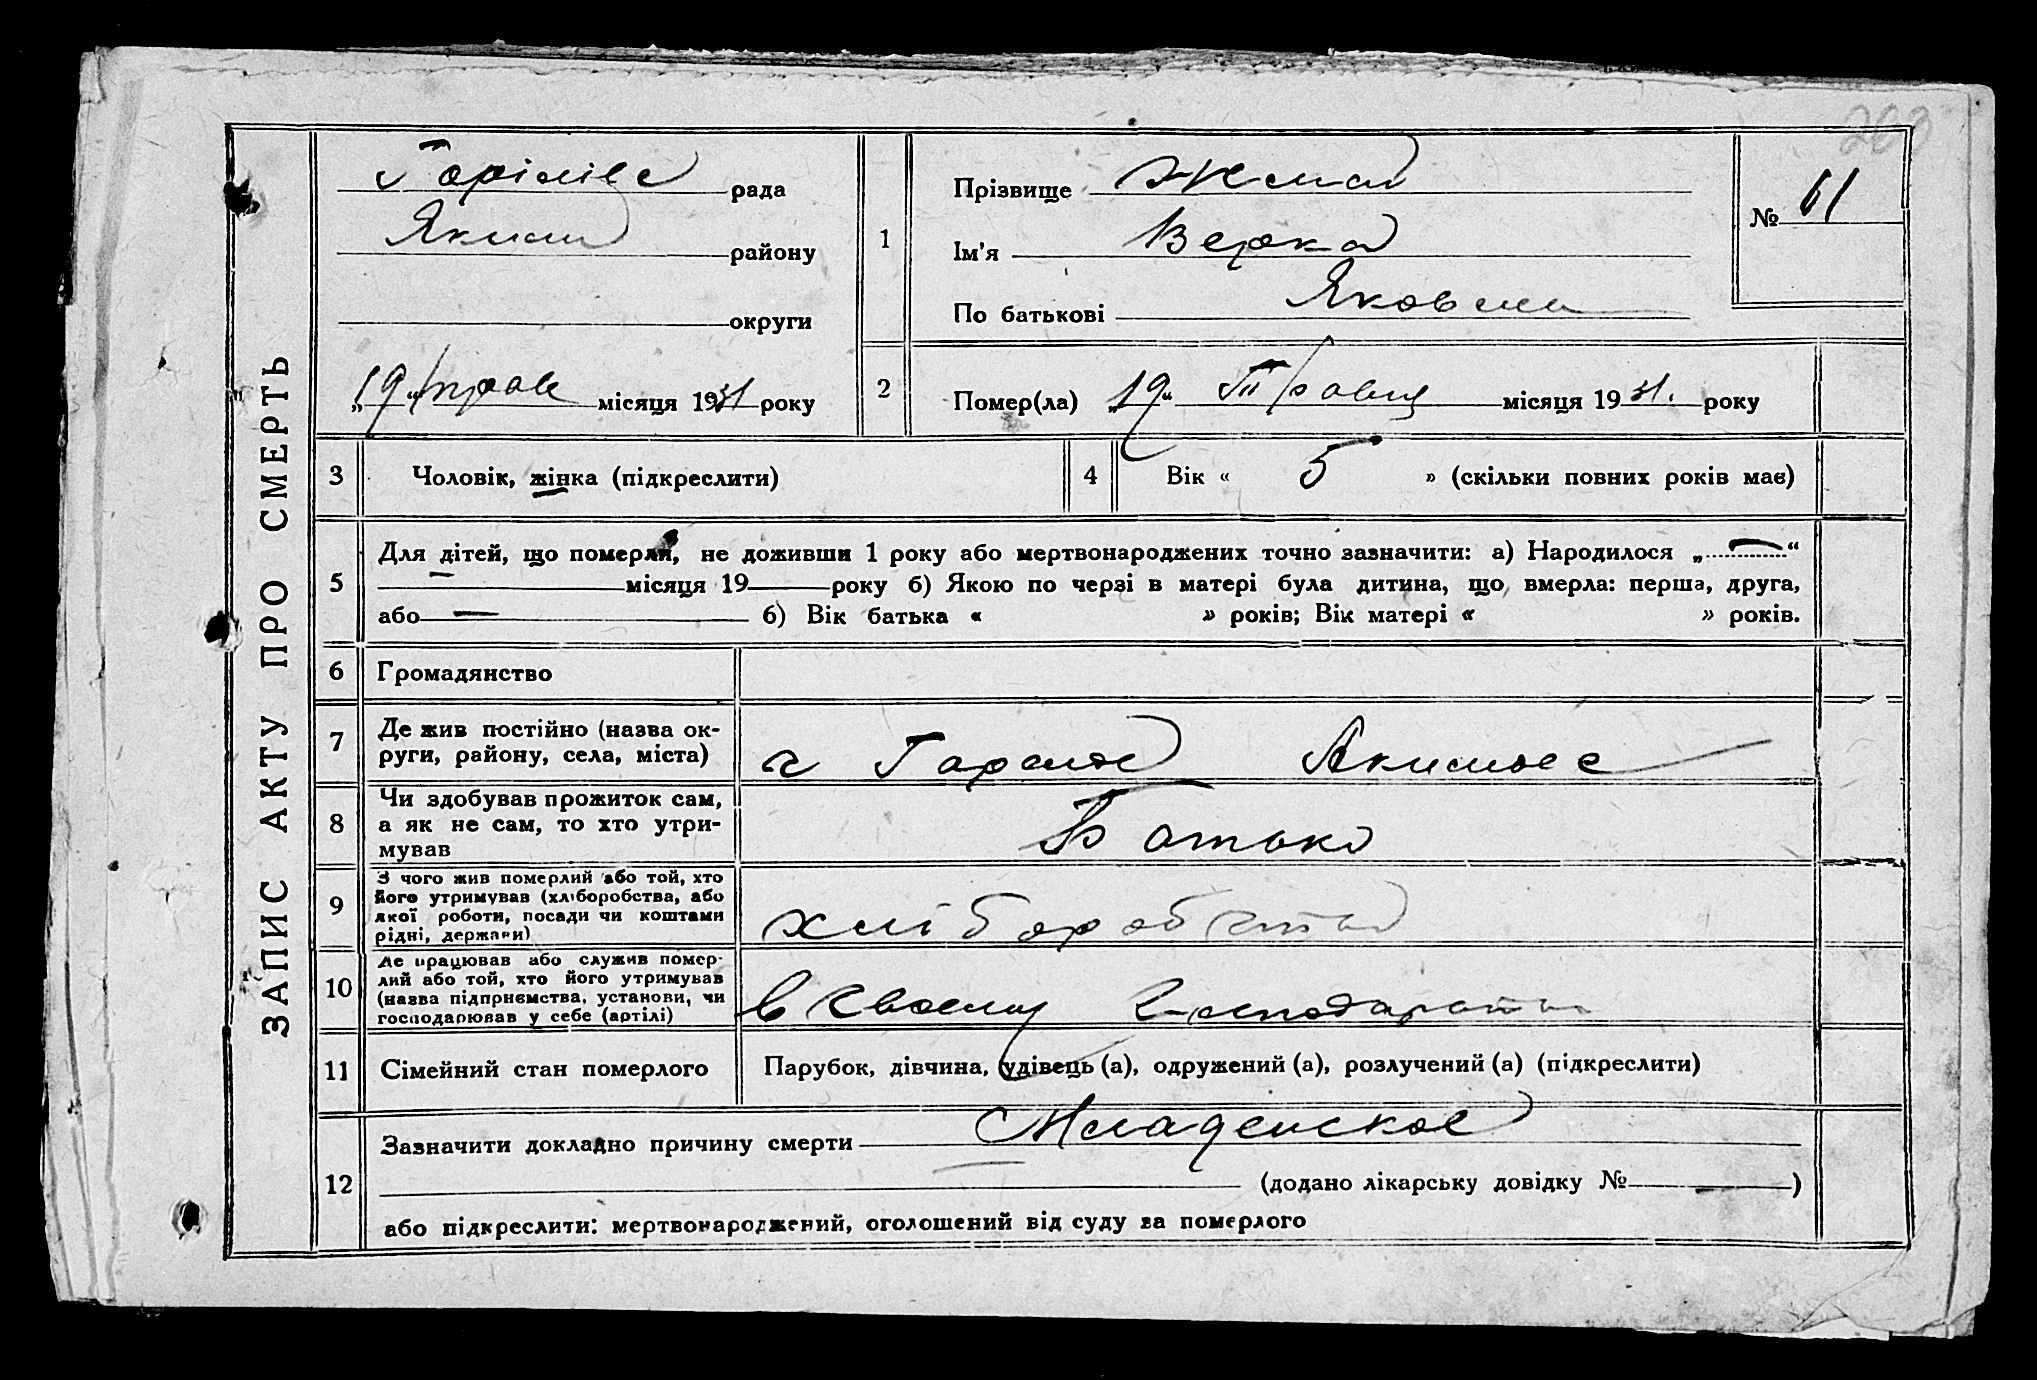 ЗАПИС АКТУ ПРО СМЕРТЬ
203
рада
району
округи
„19“ трав місяця 1931 року
1
Прізвище
Ім'я Верка
По батькові Яковли
№ 61
2
Помер(ла) „19“ Травця місяця 1931. року
3
Чоловік, жінка (підкреслити)
4
Вік « 5 » (скільки повних років має)
5
Для дітей, що померли, не доживши 1 року або мертвонароджених точно зазначити: а) Народилося „ — “
— місяця 19 року б) Якою по черзі в матері була дитина, що вмерла: перша, друга,
або — б) Вік батька « » років; Вік матері « » років.
6
Громадянство
7
Де жив постійно (назва ок-
руги, району, села, міста)
8
Чи здобував прожиток сам,
а як не сам, то хто утри-
мував
Батько
9
З чого жив померлий або той, хто
його утримував (хліборобства, або
якої роботи, посади чи коштами
рідні, держави)
хліборобства
10
Де працював або служив помер-
лий або той, хто його утримував
(назва підприємства, установи, чи
господарював у себе (артілі)
в своему
11
Сімейний стан померлого
Парубок, дівчина, удівець (а), одружений (а), розлучений (а) (підкреслити)
12
Зазначити докладно причину смерти Младенское
(додано лікарську довідку № — )
або підкреслити: мертвонароджений, оголошений від суду за померлого